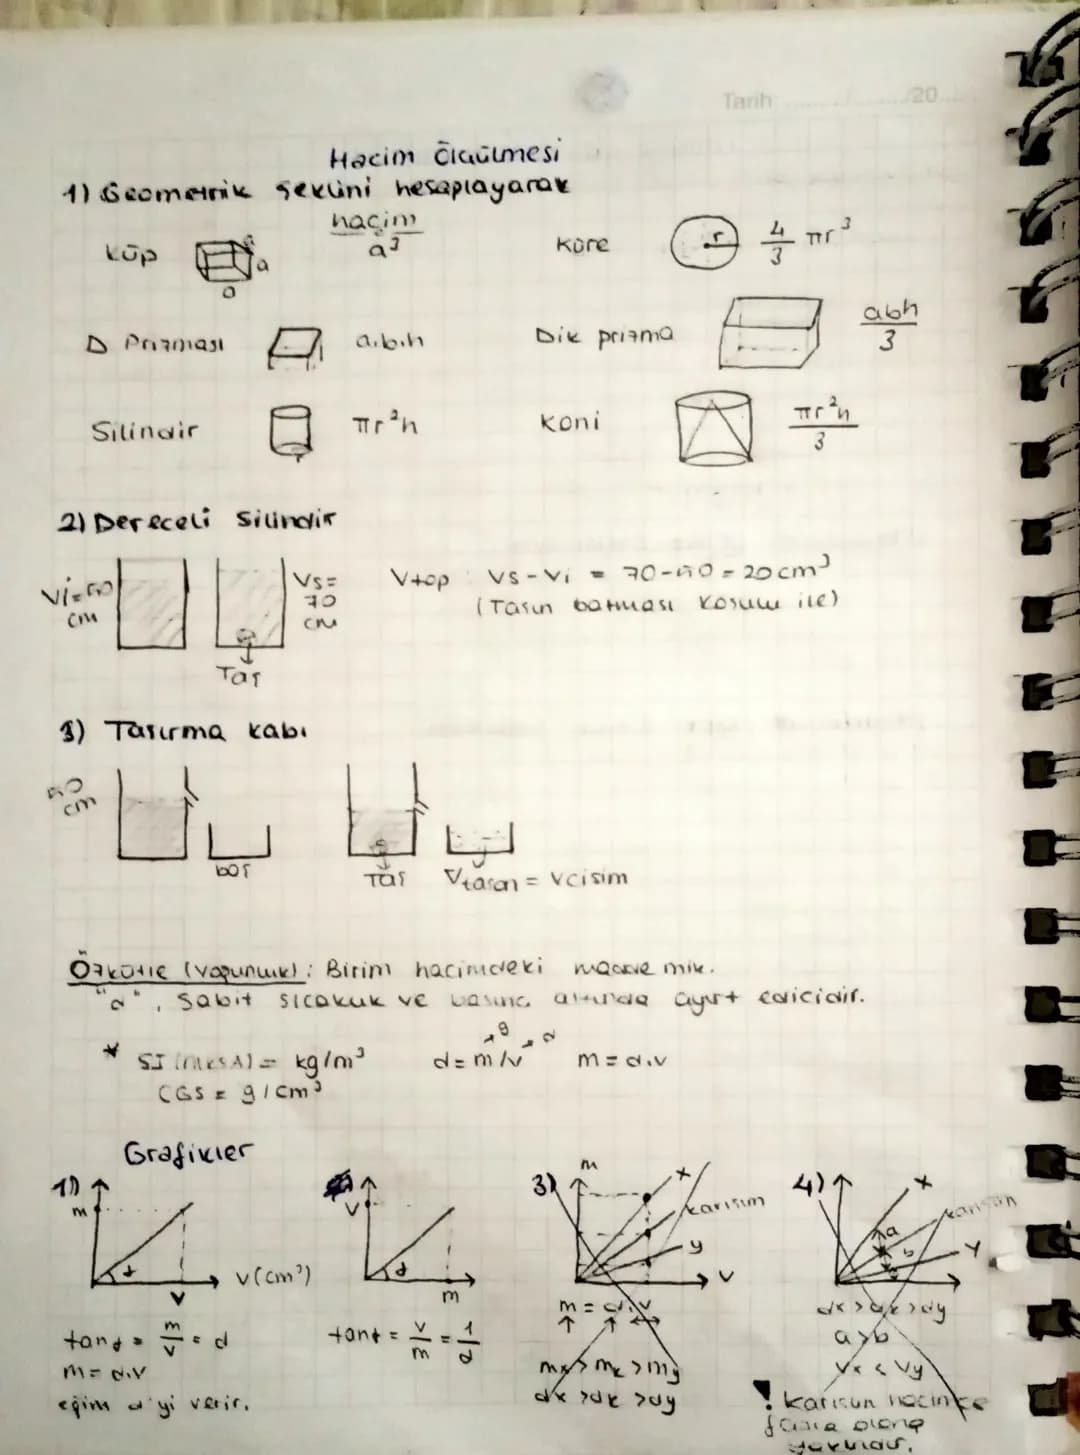 Tarih ......./......./20.....
Hacim Ölçülmesi
1) Geometrik şeklini hesaplayarak
hacim
Küp a a a a³
Küre r 4/3 πr³
D Prizması a.b.h
Dik prizma abh/3
Silindir πr²h
Koni πr²h/3
2) Dereceli Silindir
Vi=50 cm Vs= 70 cm
Vtop Vs-Vi = 70-50=20cm³
(Taşın batması koşulu ile)
Taş
3) Taşırma kabı
50 cm
boş Taş Vtaşan = Vcisim
Özkütle (Yoğunluk): Birim hacimdeki madde mik.
"d", Sabit sıcaklık ve basınç altında ayırt edicidir.
* SI (MKSA) = kg/m³ d=m/v g d m=d.v
CGS = g/cm³
Grafikler
1) m v(cm³) v
v m
3) m x karışım y v
4) x karışım y a b
tan = m/v = d
m=d.v
eğim d'yi verir.
tan = v/m = 1/d
m = d.v
mx>mk>my
dx>dk>dy
dx>dk>dy
a>b
Vx<Vy
! karışım hacimce
fazla olana
yakındır.